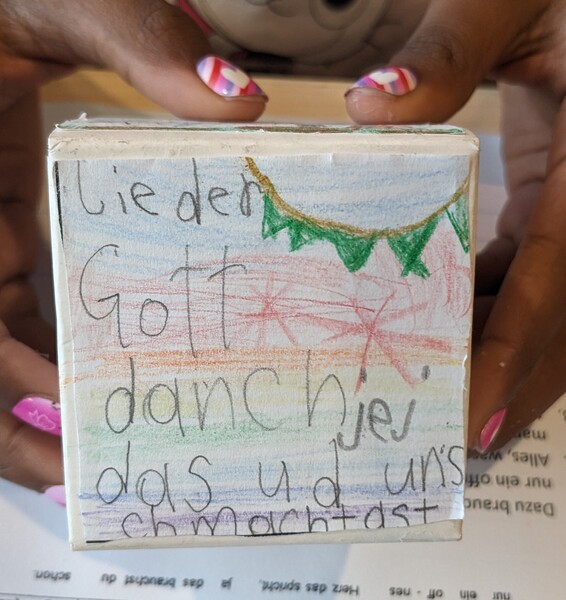 Lieder
Gott
danch jej
das ud uns
chmachtast
nur ein off - nes Herz das spricht, ja das brauchst du schon
Dazu
nur ein
Alles, was